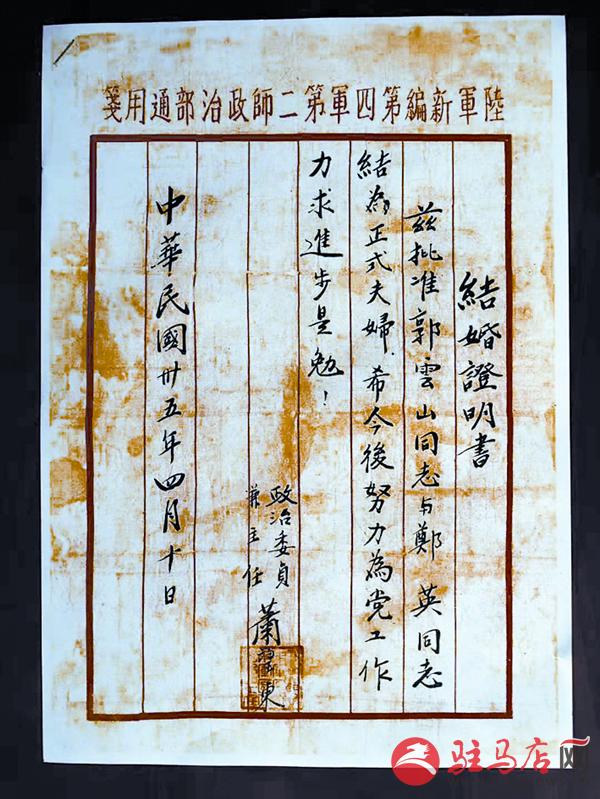 陸軍新編第四軍第二師政治部通用箋
結婚證明書
兹批准郭雲山同志与鄭 英同志
結為正式夫婦.希今後努力為党工作
力求進步是勉！
政治委員
兼主任
蕭望東
中華民國卅五年四月十日
驻马店网